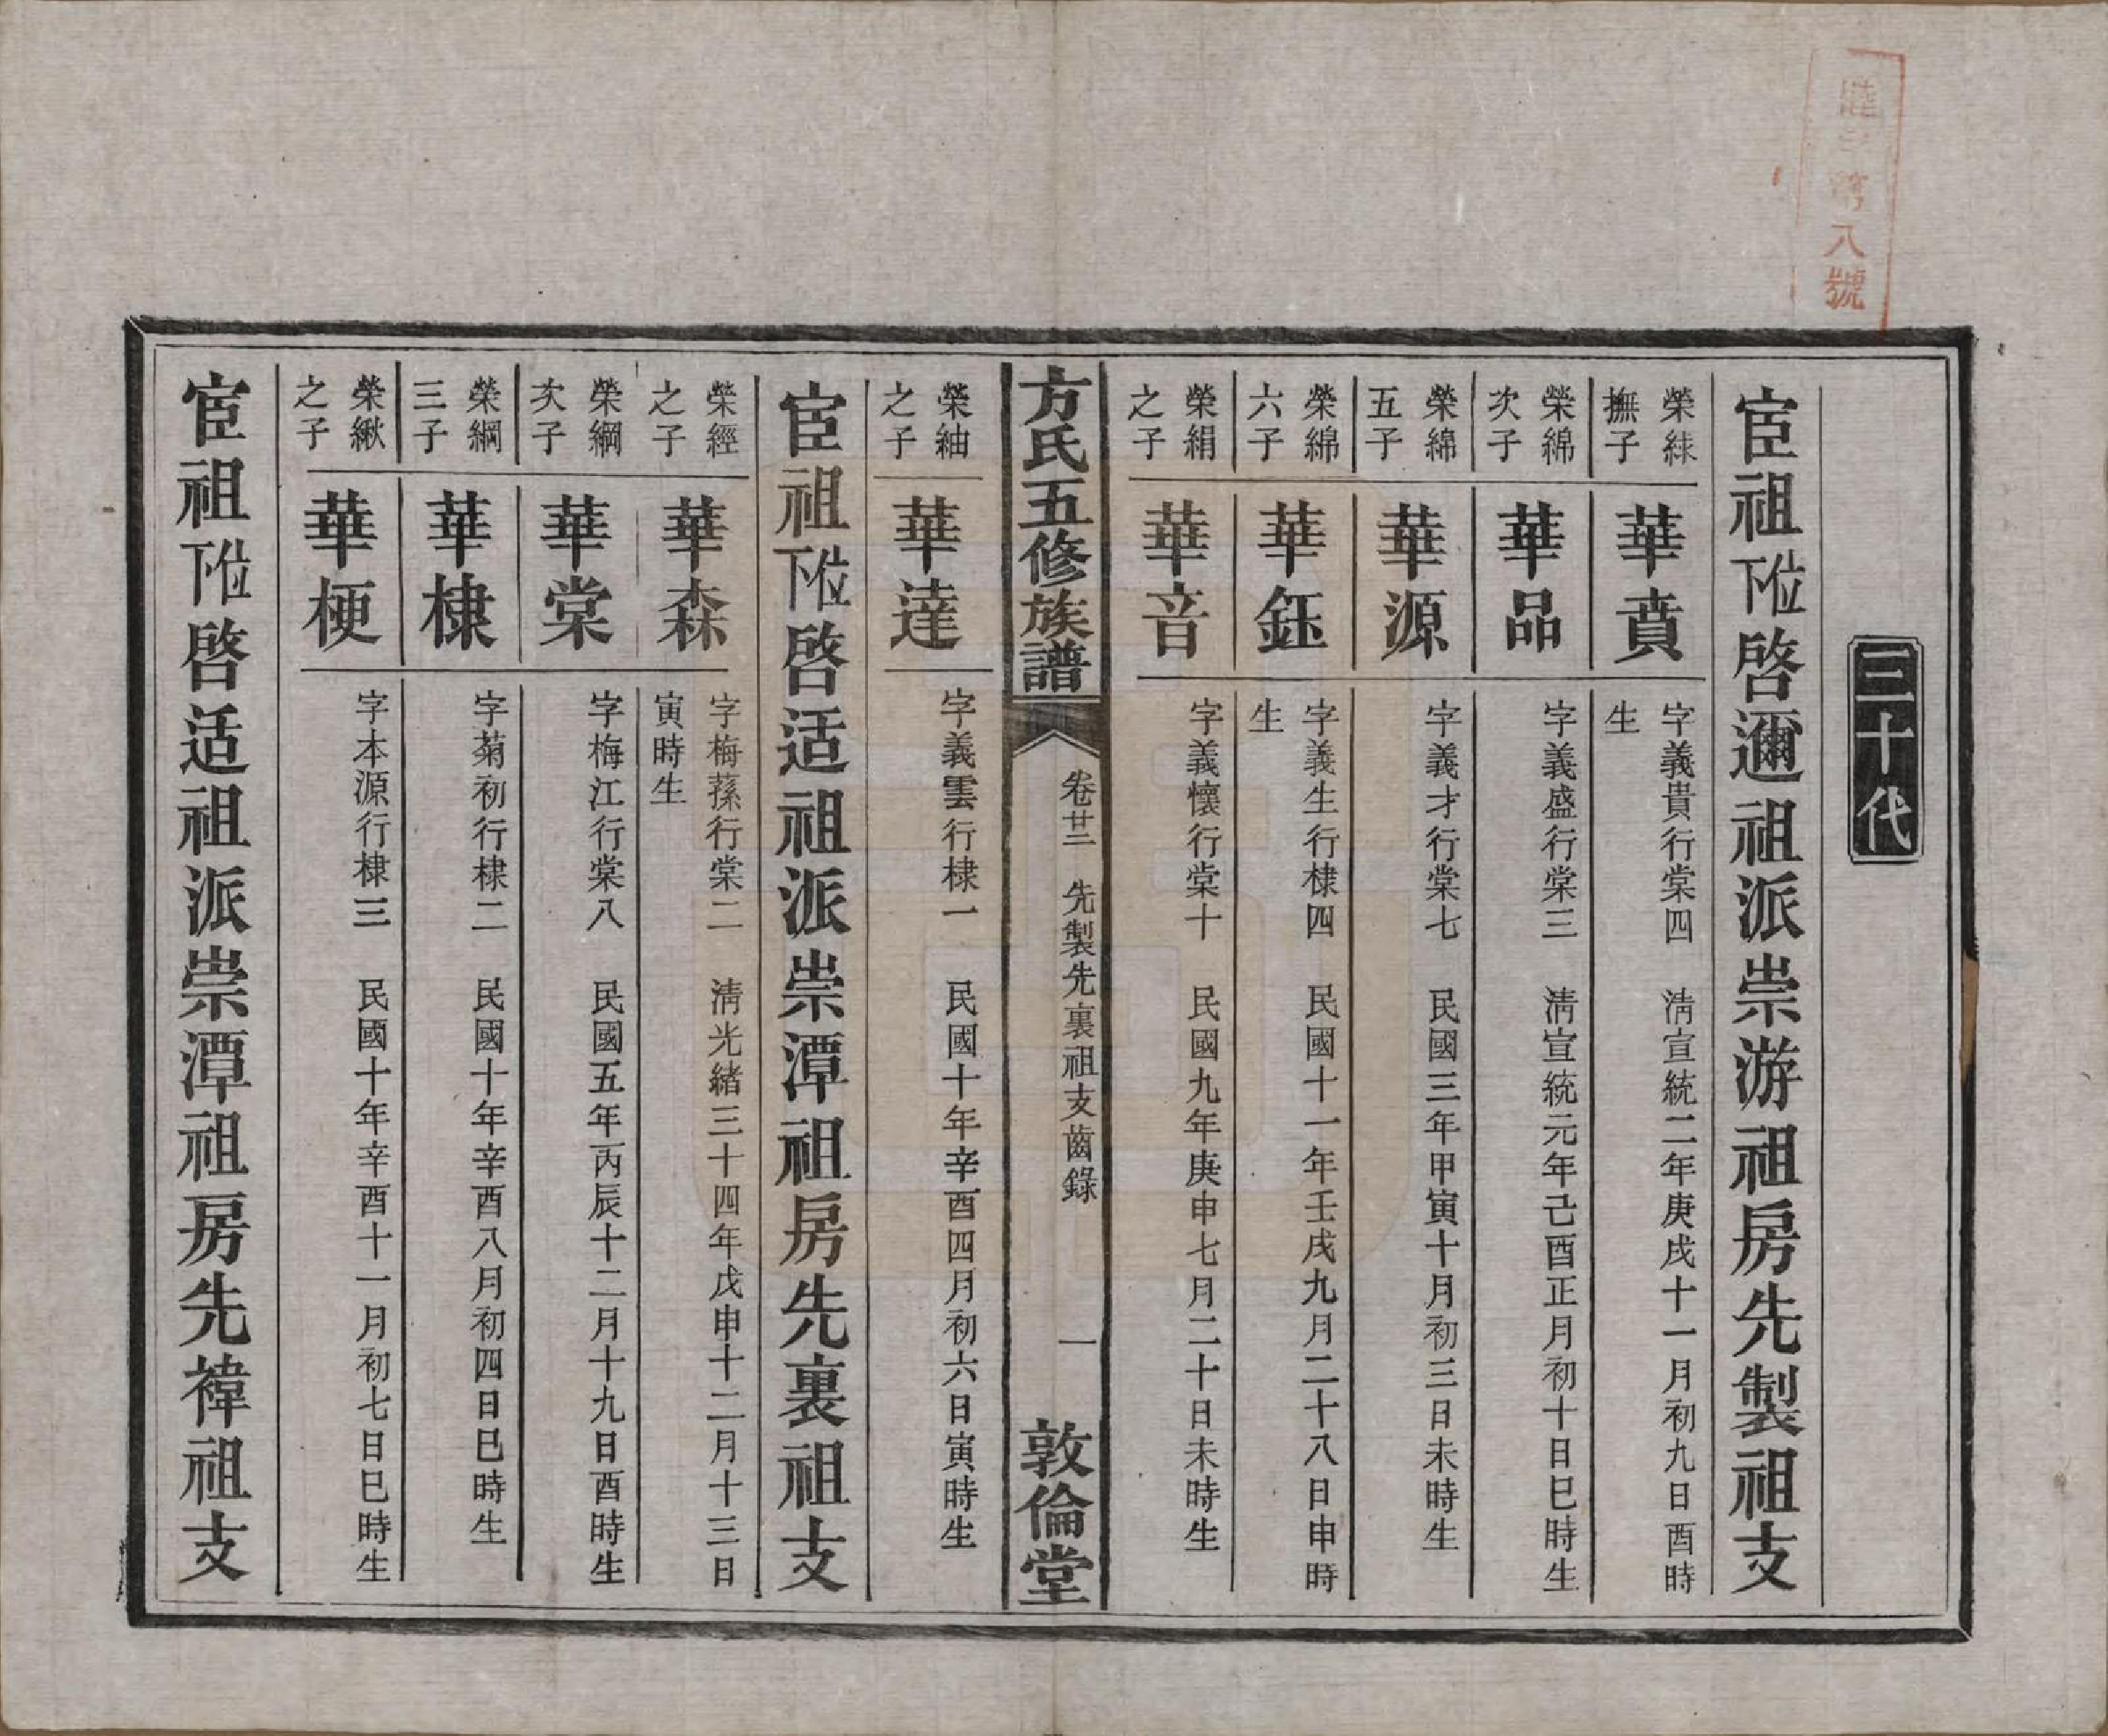 三十代
宦祖位下啓邇祖派崇游祖房先製祖支
榮紩
撫子
華賁
字義貴行棠四 淸宣統二年庚戌十一月初九日酉時
生
榮綿
次子
華品
字義盛行棠三 淸宣統元年己酉正月初十日巳時生
榮綿
五子
華源
字義才行棠七 民國三年甲寅十月初三日未時生
榮綿
六子
華鈺
字義生行棣四 民國十一年壬戌九月二十八日申時
生
榮絹
之子
華音
字義懷行棠十 民國九年庚申七月二十日未時生
方氏五修族譜
卷廿二 先製先裏祖支齒錄
一
敦倫堂
榮紬
之子
華達
字義雲行棣一 民國十年辛酉四月初六日寅時生
宦祖位下啓适祖派崇潭祖房先裏祖支
榮經
之子
華森
字梅蓀行棠二 淸光緖三十四年戊申十二月十三日
寅時生
榮綱
次子
華棠
字梅江行棠八 民國五年丙辰十二月十九日酉時生
榮綱
三子
華棣
字菊初行棣二 民國十年辛酉八月初四日巳時生
榮緻
之子
華梗
字本源行棣三 民國十年辛酉十一月初七日巳時生
宦祖位下啓适祖派崇潭祖房先褘祖支
八號